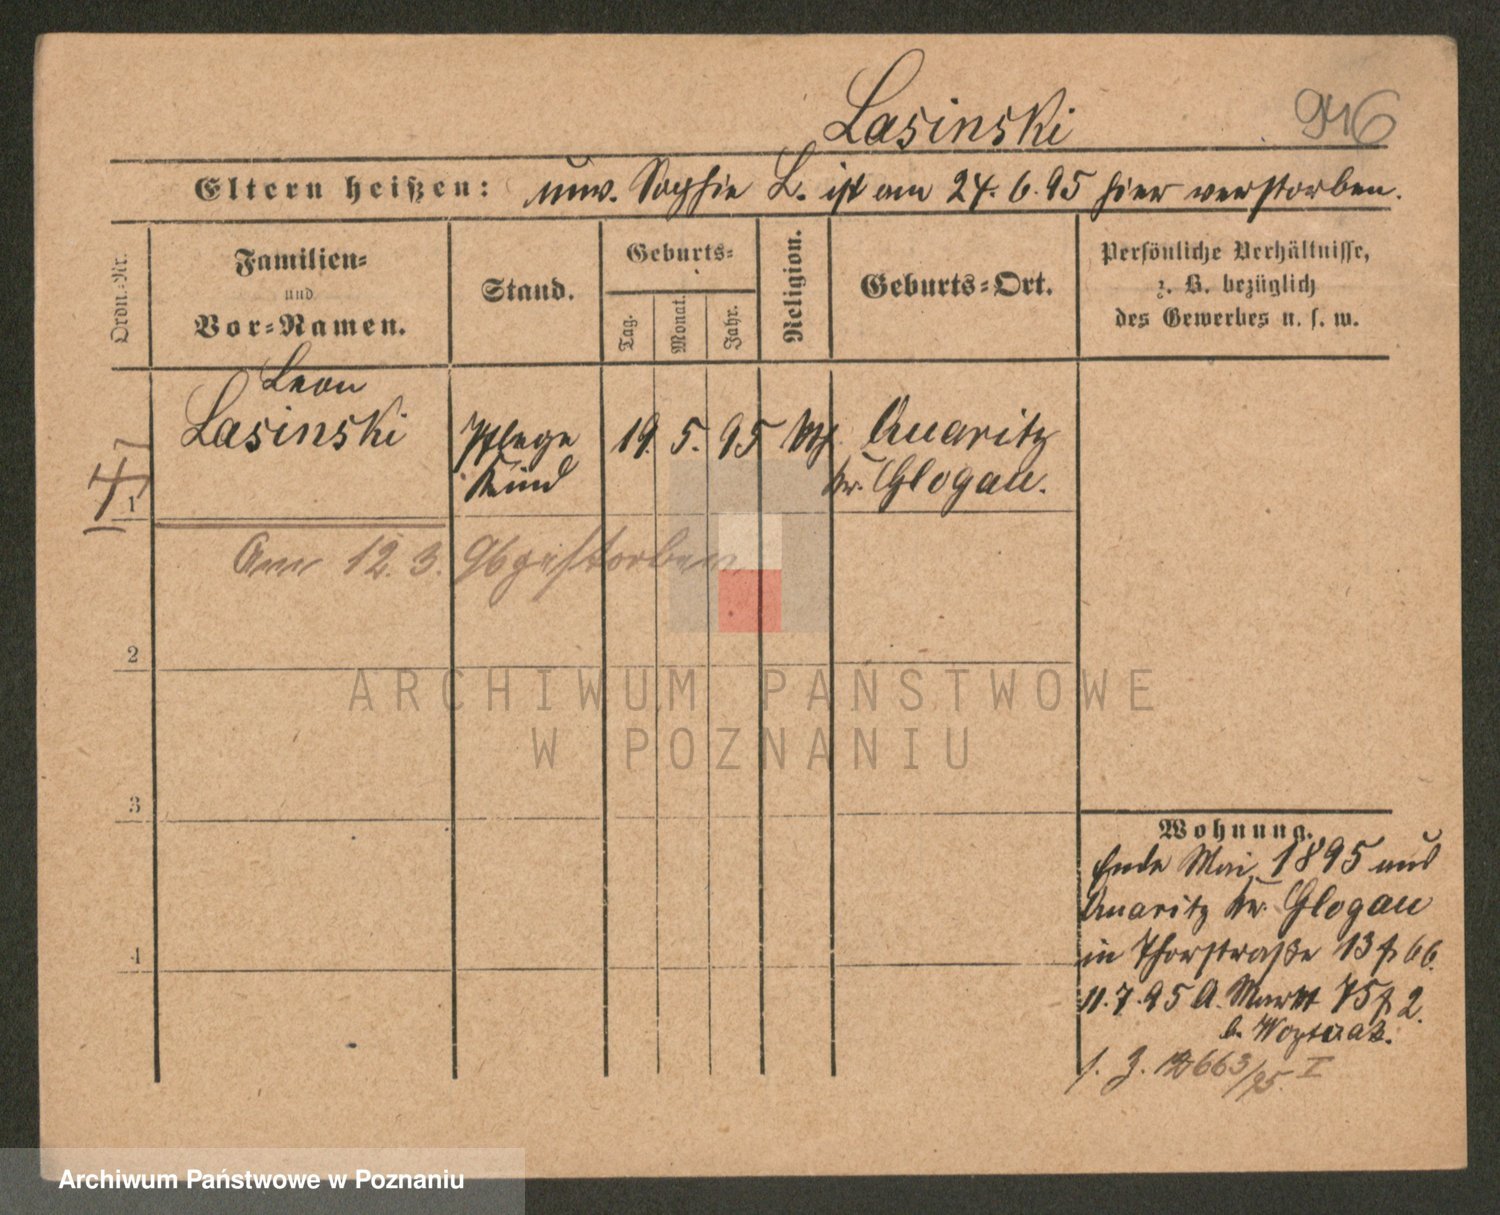 Lasinski
946
Eltern heißen: unv. Sophie L. ist am 24. 6. 95 hier verstorben.
Ordn.-Nr.
Familien-
und
Vor-Namen.
Stand.
Geburts-
Tag.
Monat.
Jahr.
Religion.
Geburts-Ort.
Persönliche Verhältnisse,
z. B. bezüglich
des Gewerbes u. s. w.
Leon
Lasinski
Pflege
Kind
19. 5. 95
Quaritz
Kr. Glogau.
1
Am 12. 3. 96 gestorben
2
ARCHIWUM PAŃSTWOWE
W POZNANIU
3
4
Wohnung.
Ende Mai 1895 aus
Quaritz Kr. Glogau
in Thorstraße 13
11. 7. 95 A. Markt 75
b.
Archiwum Państwowe w Poznaniu